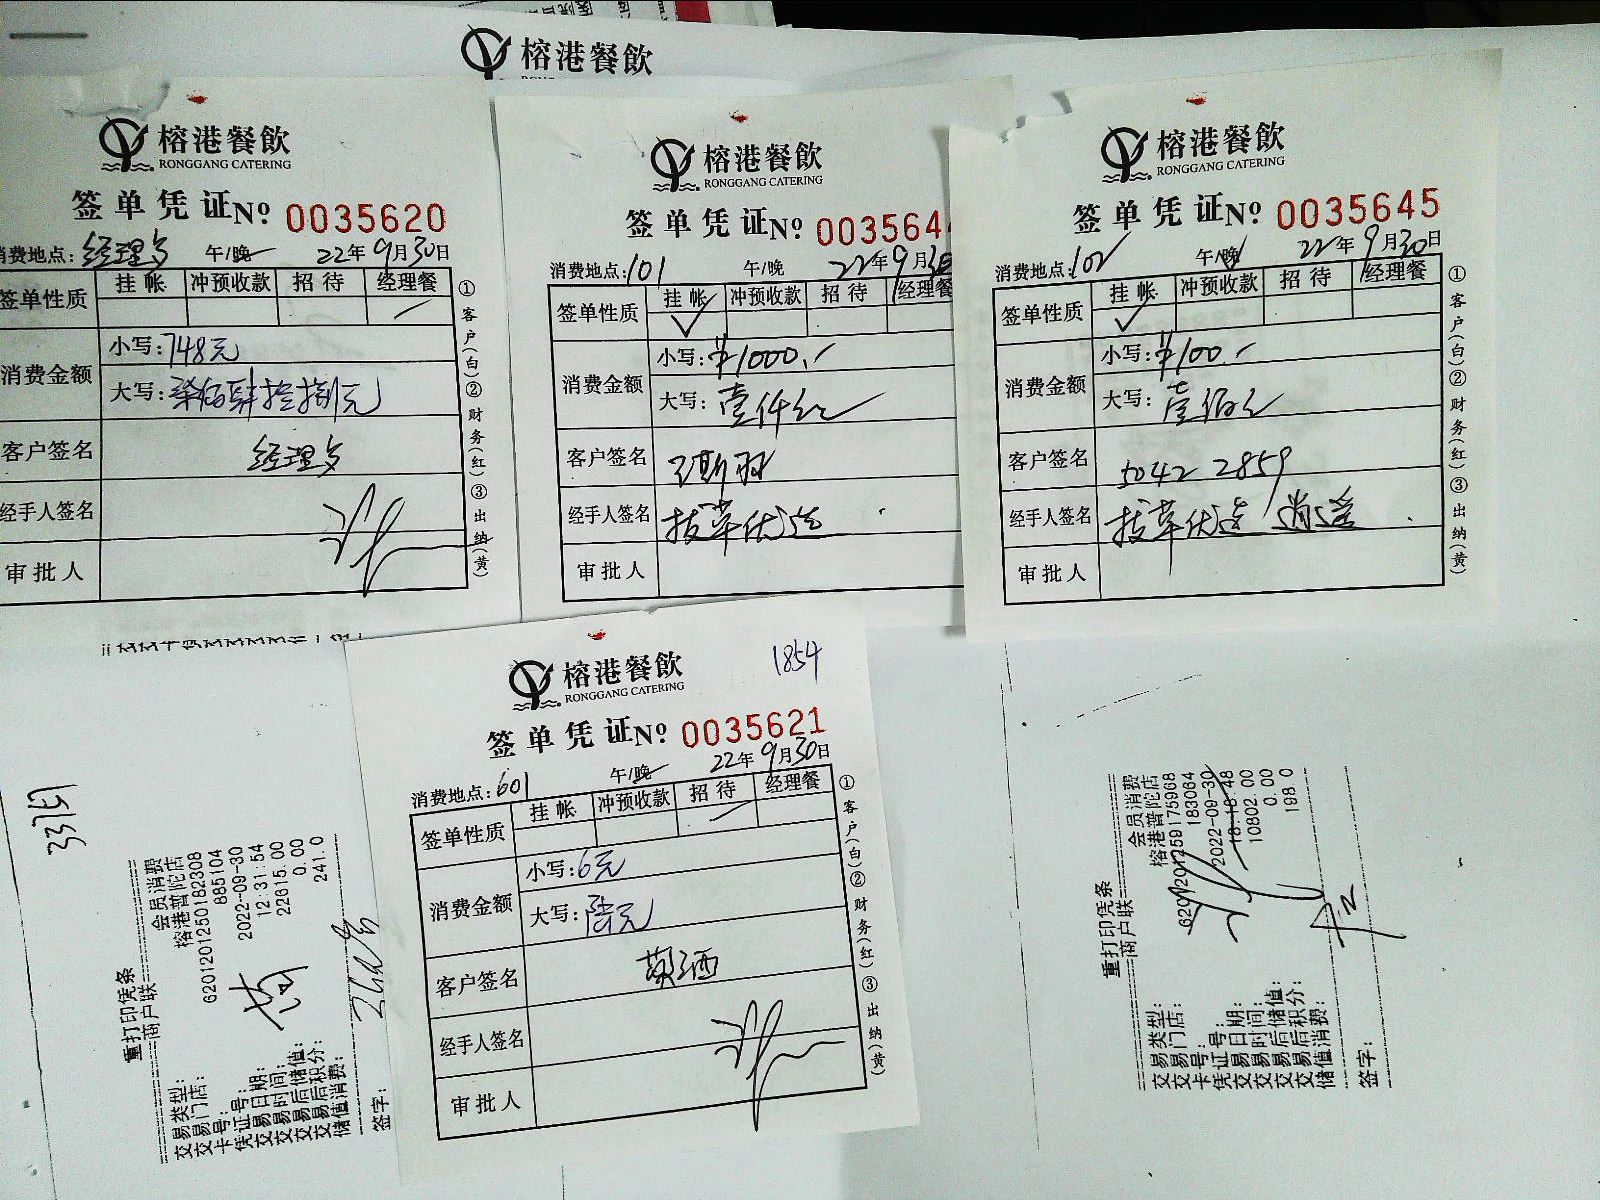 榕港餐飲
榕港餐飲
RONGGANG CATERING
签单凭证No 0035620
消费地点: 经理 午/晚 22年9月30日
签单性质 挂帐 冲预收款 招待 经理餐
消费金额 小写: 748元
大写: 柒佰肆拾捌元
客户签名 经理
经手人签名
审批人
①客户(白)②财务(红)③出纳(黄)
榕港餐飲
RONGGANG CATERING
签单凭证No 003564
消费地点: 101 午/晚 22年9月30
签单性质 挂帐 冲预收款 招待 经理餐
消费金额 小写: ¥1000.
大写: 壹仟元
客户签名
经手人签名 拔草优选
审批人
榕港餐飲
RONGGANG CATERING
签单凭证No 0035645
消费地点: 102 午/晚 22年9月30日
签单性质 挂帐 冲预收款 招待 经理餐
消费金额 小写: ¥100.
大写: 壹佰元
客户签名 5042 2859
经手人签名 拔草优选 逍遥
审批人
①客户(白)②财务(红)③出纳(黄)
1854
榕港餐飲
RONGGANG CATERING
签单凭证No 0035621
消费地点: 601 午/晚 22年9月30日
签单性质 挂帐 冲预收款 招待 经理餐
消费金额 小写: 6元
大写: 陆元
客户签名 黄酒
经手人签名
审批人
①客户(白)②财务(红)③出纳(黄)
重打印凭条
商户联
交易类型: 会员消费
交易门店: 榕港普陀店
卡号: 6201201250182308
凭证号: 885104
交易日期: 2022-09-30
交易时间: 12:31:54
交易后储值: 22615.00
交易后积分: 0.00
储值消费: 241.0
签字:
重打印凭条
商户联
交易类型: 会员消费
交易门店: 榕港普陀店
卡号: 6201201259175968
凭证号: 183064
交易日期: 2022-09-30
交易时间: 18:18:48
交易后储值: 10802.00
交易后积分: 0.00
储值消费: 198.0
签字: